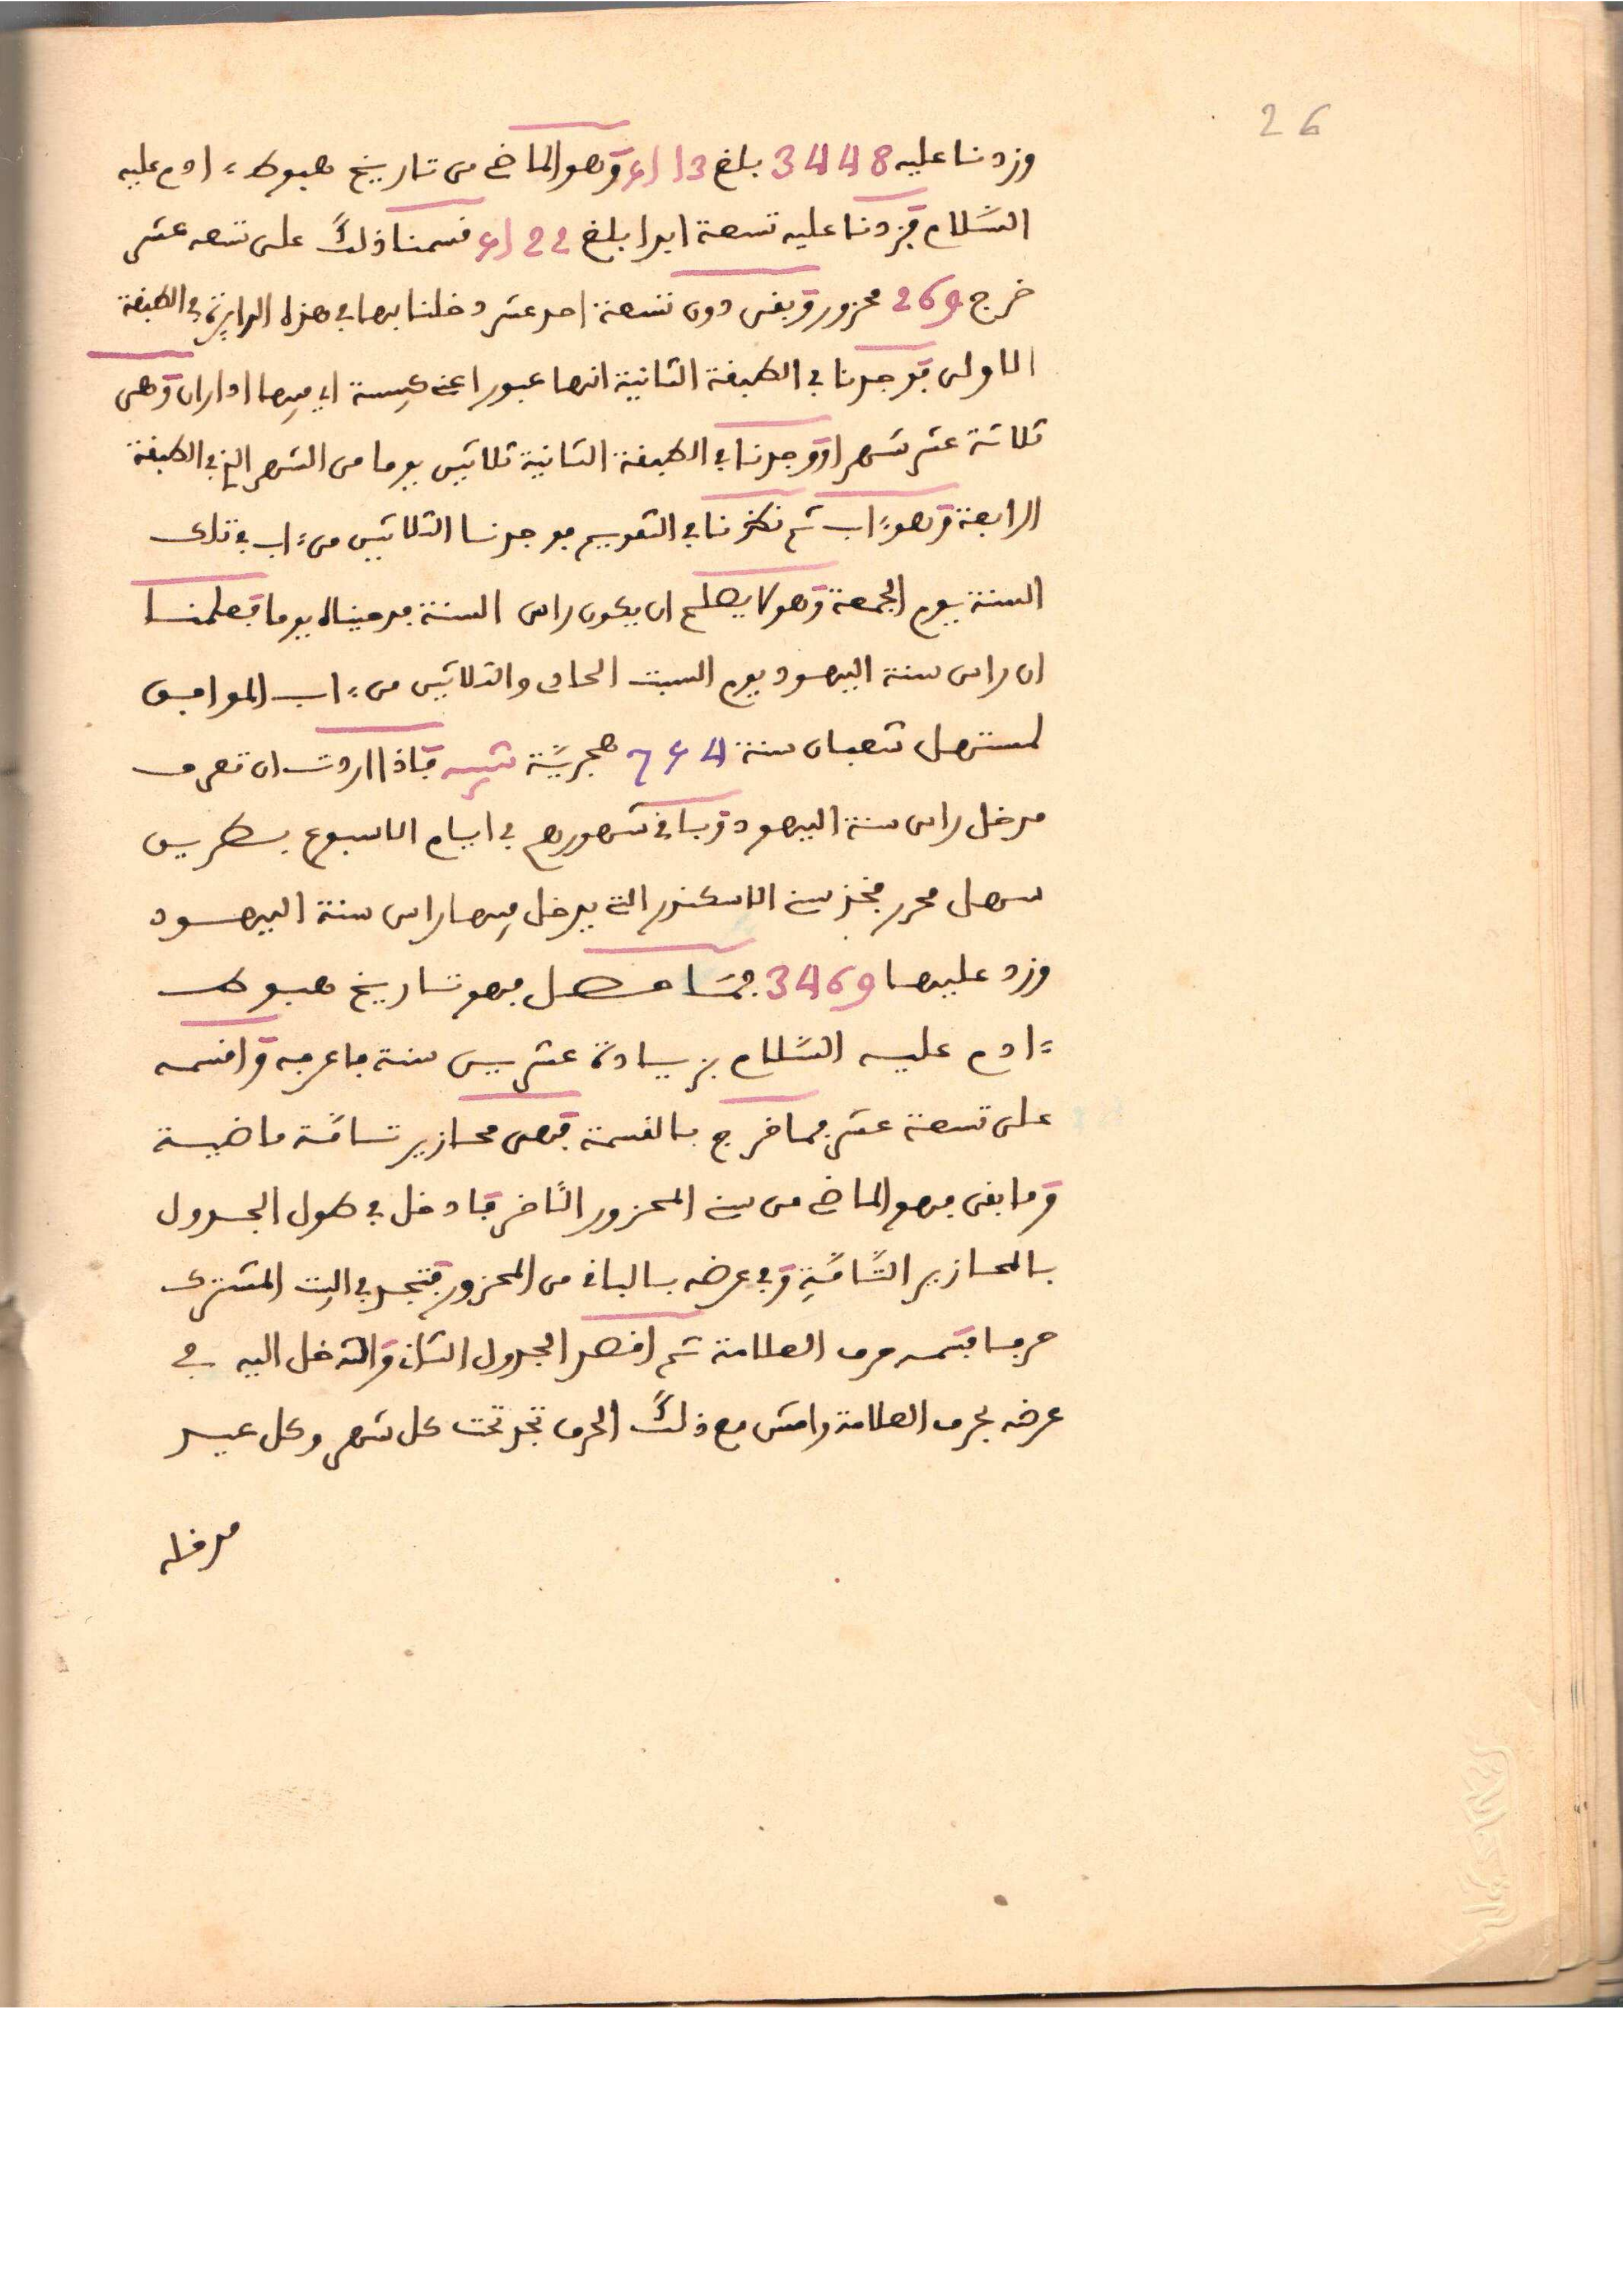 26
وزدنا عليه 3448 بلغ 5113 وهو الماضي من تاريخ هبوط ءادم عليه
السّلام فزدنا عليه تسعة ابدا بلغ 5122 قسمنا ذلك على تسعه عشر
خرج 269 محزور وبقى دون تسعة احد عشر دخلنا بها في هذه الدايرة في الطبقة
الاولى فوجدنا في الطبقة الثانية انها عبور اعني كبيسة اي فيها اداران وهى
ثلاثة عشر شهرا ووجدنا في الطبقة الثانية ثلاثين يوما من الشهر الذي في الطبقة
الرابعة وهو ءاب ثم نظرنا في التقويم فوجدنا الثلاثين من ءاب في تلك
السنة يوم الجمعة وهو لا يصلح ان يكون راس السنة فرمينا له يوما فعلمنا
ان راس سنة اليهود يوم السبت الحادي والثلاثين من ءاب الموافق
لمستهل شعبان سنة 764 هجريّة تنبيه فاذا اردت ان تعرف
مدخل راس سنة اليهود وباقي شهورهم في ايام الاسبوع بطريق
سهل محرر فخذ سني الاسكندر التي يدخل فيها راس سنة اليهود
وزد عليها 3469 فما حصل فهو تاريخ هبوط
ءادم عليه السّلام بزيادة عشرين سنة فاعرفه واقسمه
على تسعة عشر فما خرج بالقسمة فهى محازير تامّة ماضية
وما بقى فهو الماضي من سني المحزور النّاخر فادخل في طول الجدول
بالمحازير التّامّةِ وفي عرضه بالباقي من المحزور فتجد في البيت المشترك
حرفا فسمه حرف العلامة ثم اقصد الجدول الثاني وادخل اليه في
عرضه بحرف العلامة وامش مع ذلك الحرف تجد تحت كل شهر وكل عيد
مدخله